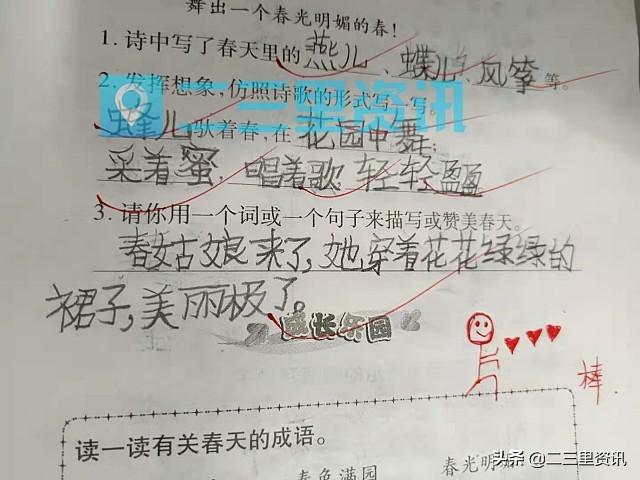 舞出一个春光明媚的春！
1. 诗中写了春天里的燕儿、蝶儿、风筝等。
2. 发挥想象，仿照诗歌的形式写一写。
二三里资讯
蜂儿驮着春，在花园中舞；
采着蜜，唱着歌，轻轻盈盈
3. 请你用一个词或一个句子来描写或赞美春天。
春姑娘来了,她穿着花花绿绿的
裙子,美丽极了。
成长乐园
棒
读一读有关春天的成语。
春色满园 春光明媚
头条@二三里资讯